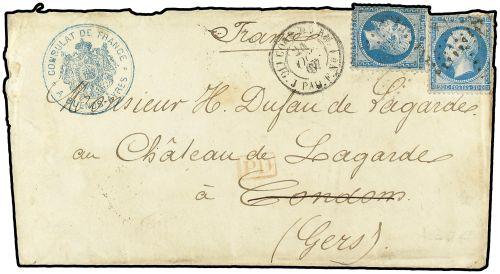 France
CONSULAT DE FRANCE
A BUENOS-AYRES
Monsieur H. Dufau de Lagarde
au Château de Lagarde
PD
à Condom
(Gers)